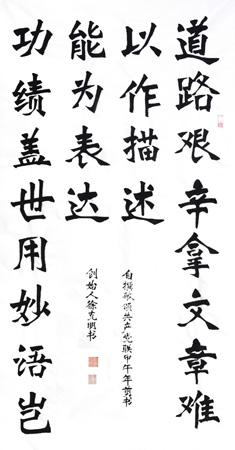 道路艰辛拿文章难
以作描述
功绩盖世用妙语岂
能为表达
自撰敬颂共产党联甲午年书
创始人徐克明书